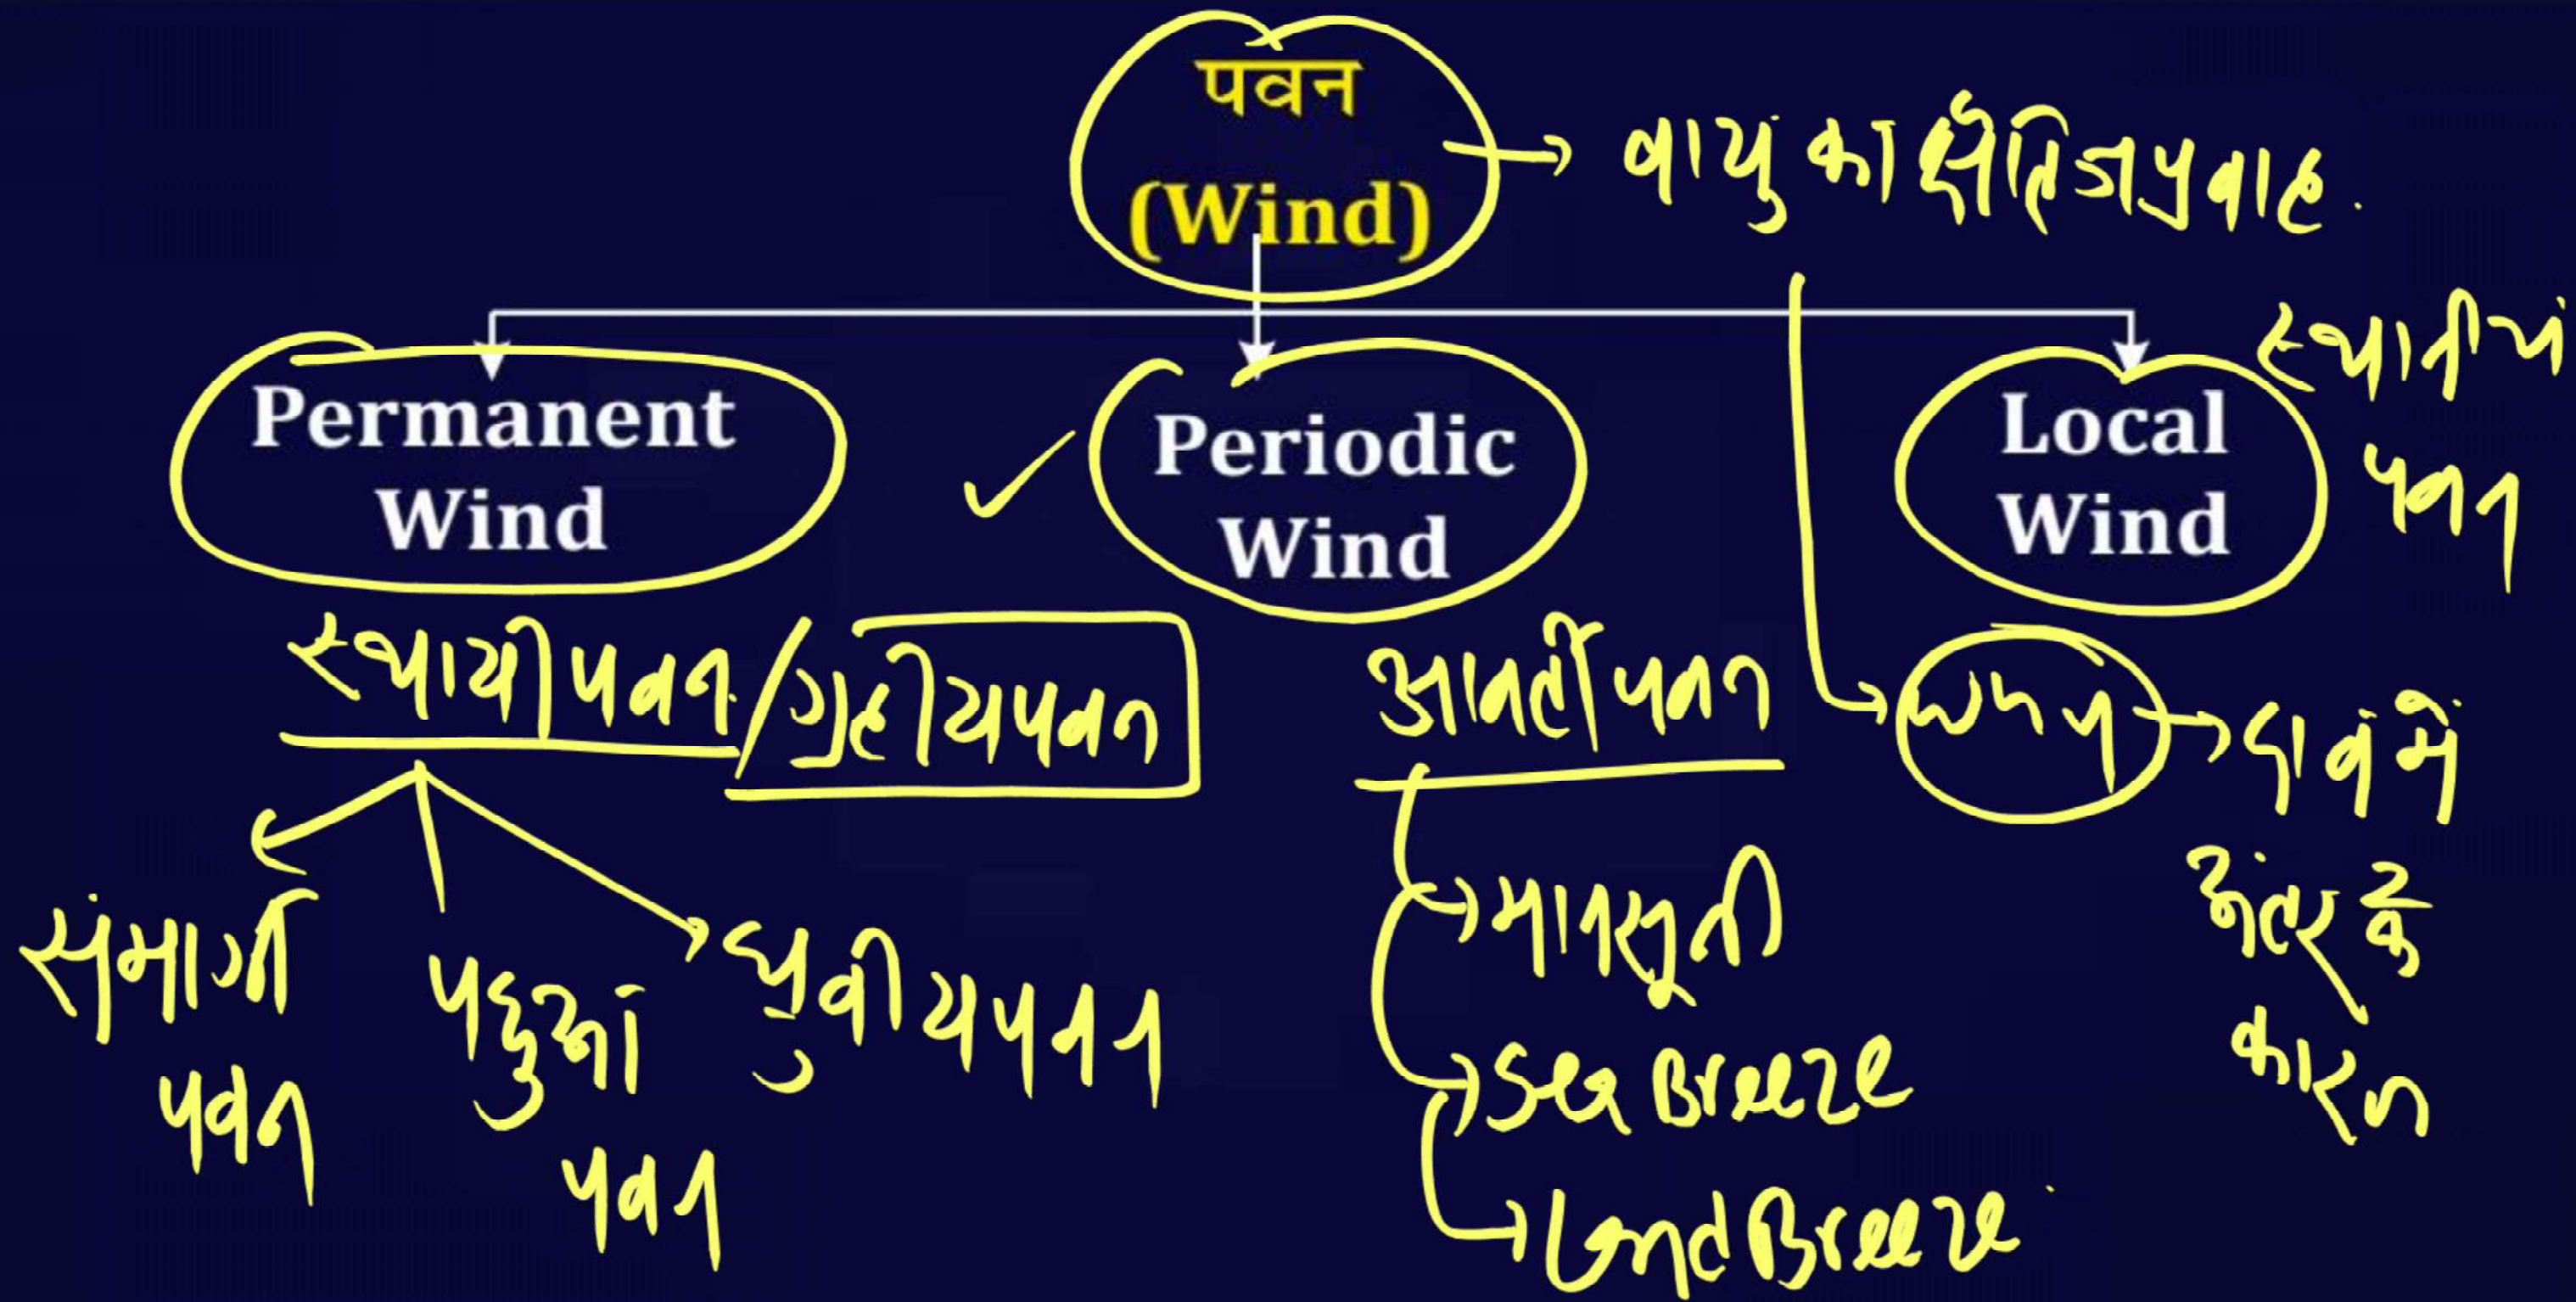 पवन
(Wind)
→ वायु का क्षैतिज प्रवाह.
Permanent
Wind
Periodic
Wind
Local
Wind
स्थानीय
पवन
स्थायी पवन/ग्रहीय पवन
आवर्ती पवन
Why → दाब में
अंतर के
कारन
संमार्गी
पवन
पछुआ
पवन
ध्रुवीय पवन
→ मानसूनी
→ Sea Breeze
→ Land Breeze